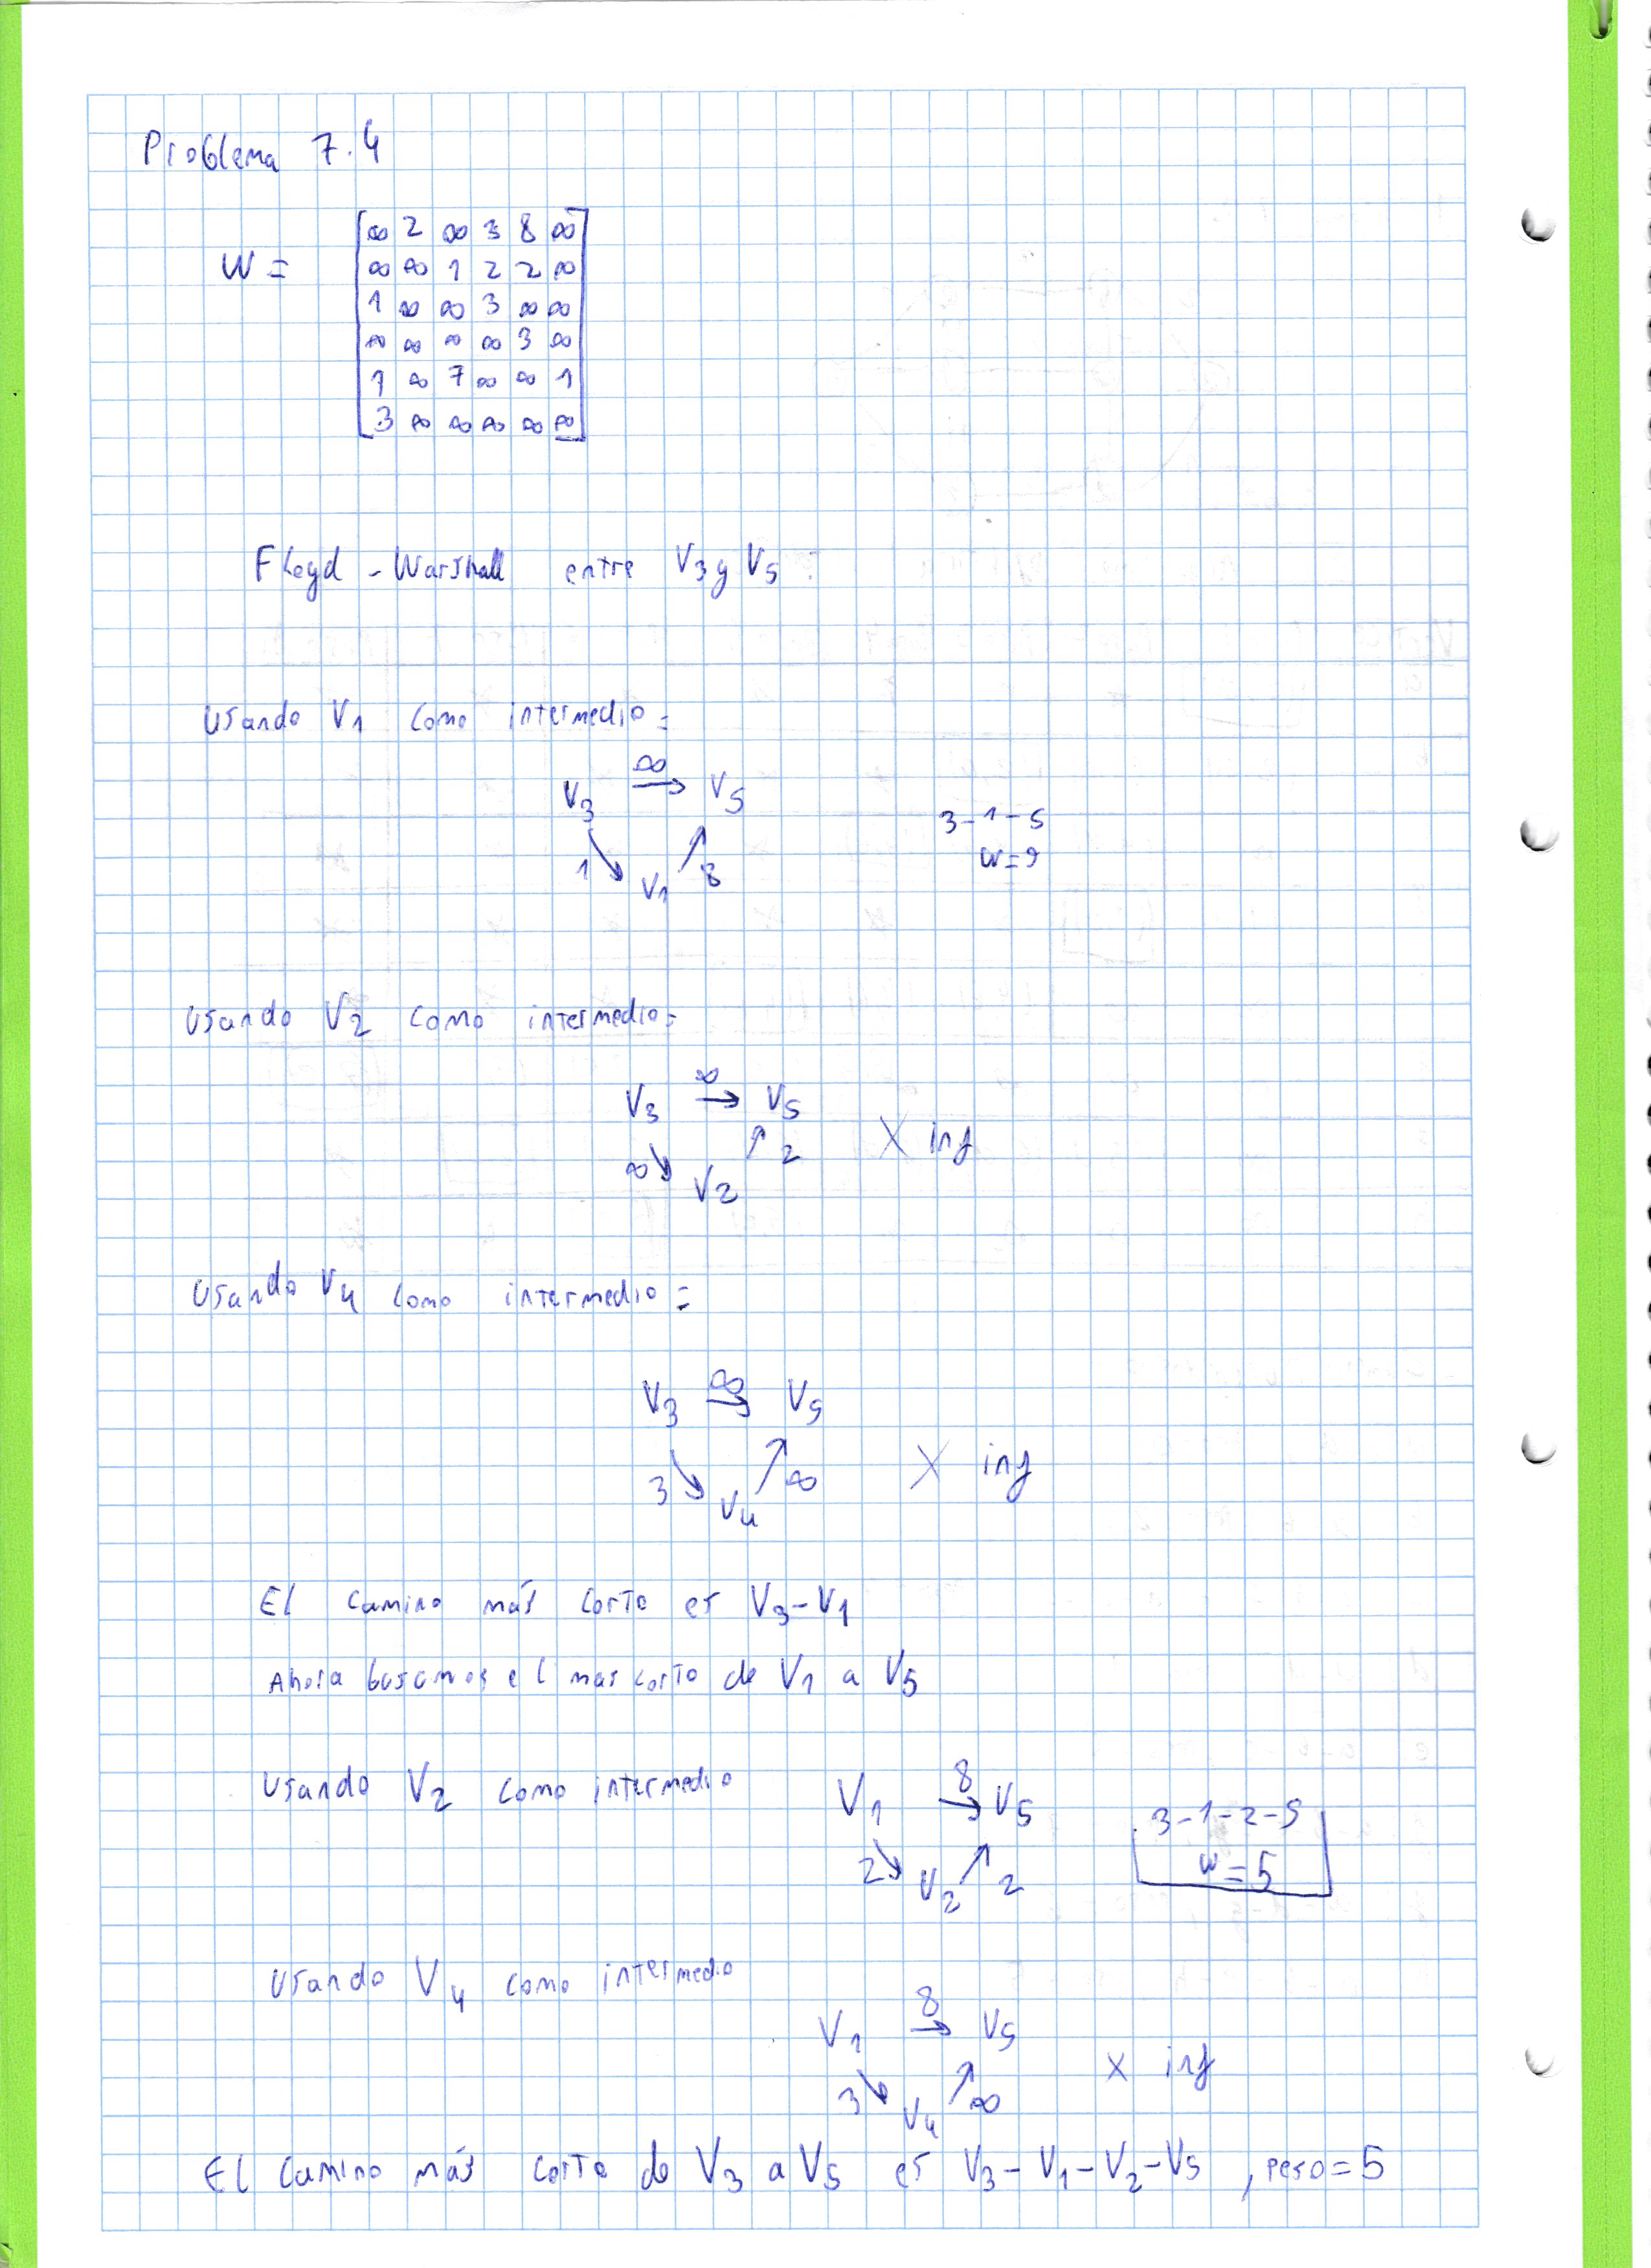 Problema 7.4
W =
∞ 2 ∞ 3 8 ∞
∞ ∞ 1 2 2 ∞
1 ∞ ∞ 3 ∞ ∞
∞ ∞ ∞ ∞ 3 ∞
1 ∞ 7 ∞ ∞ 1
3 ∞ ∞ ∞ ∞ ∞
Floyd - Warshall entre V3 y V5 :
Usando V1 como intermedio =
V3 ∞→ V5
1 V1 8
3-1-5
W=9
Usando V2 como intermedio =
V3 ∞→ V5
∞ V2 2
X inf
Usando V4 como intermedio =
V3 ∞→ V5
3 V4 ∞
X inf
El camino más corto es V3-V1
Ahora buscamos el mas corto de V1 a V5
Usando V2 como intermedio
V1 8→ V5
2 V2 2
3-1-2-5
W=5
Usando V4 como intermedio
V1 8→ V5
3 V4 ∞
X inf
El camino más corto de V3 a V5 es V3-V1-V2-V5, peso=5